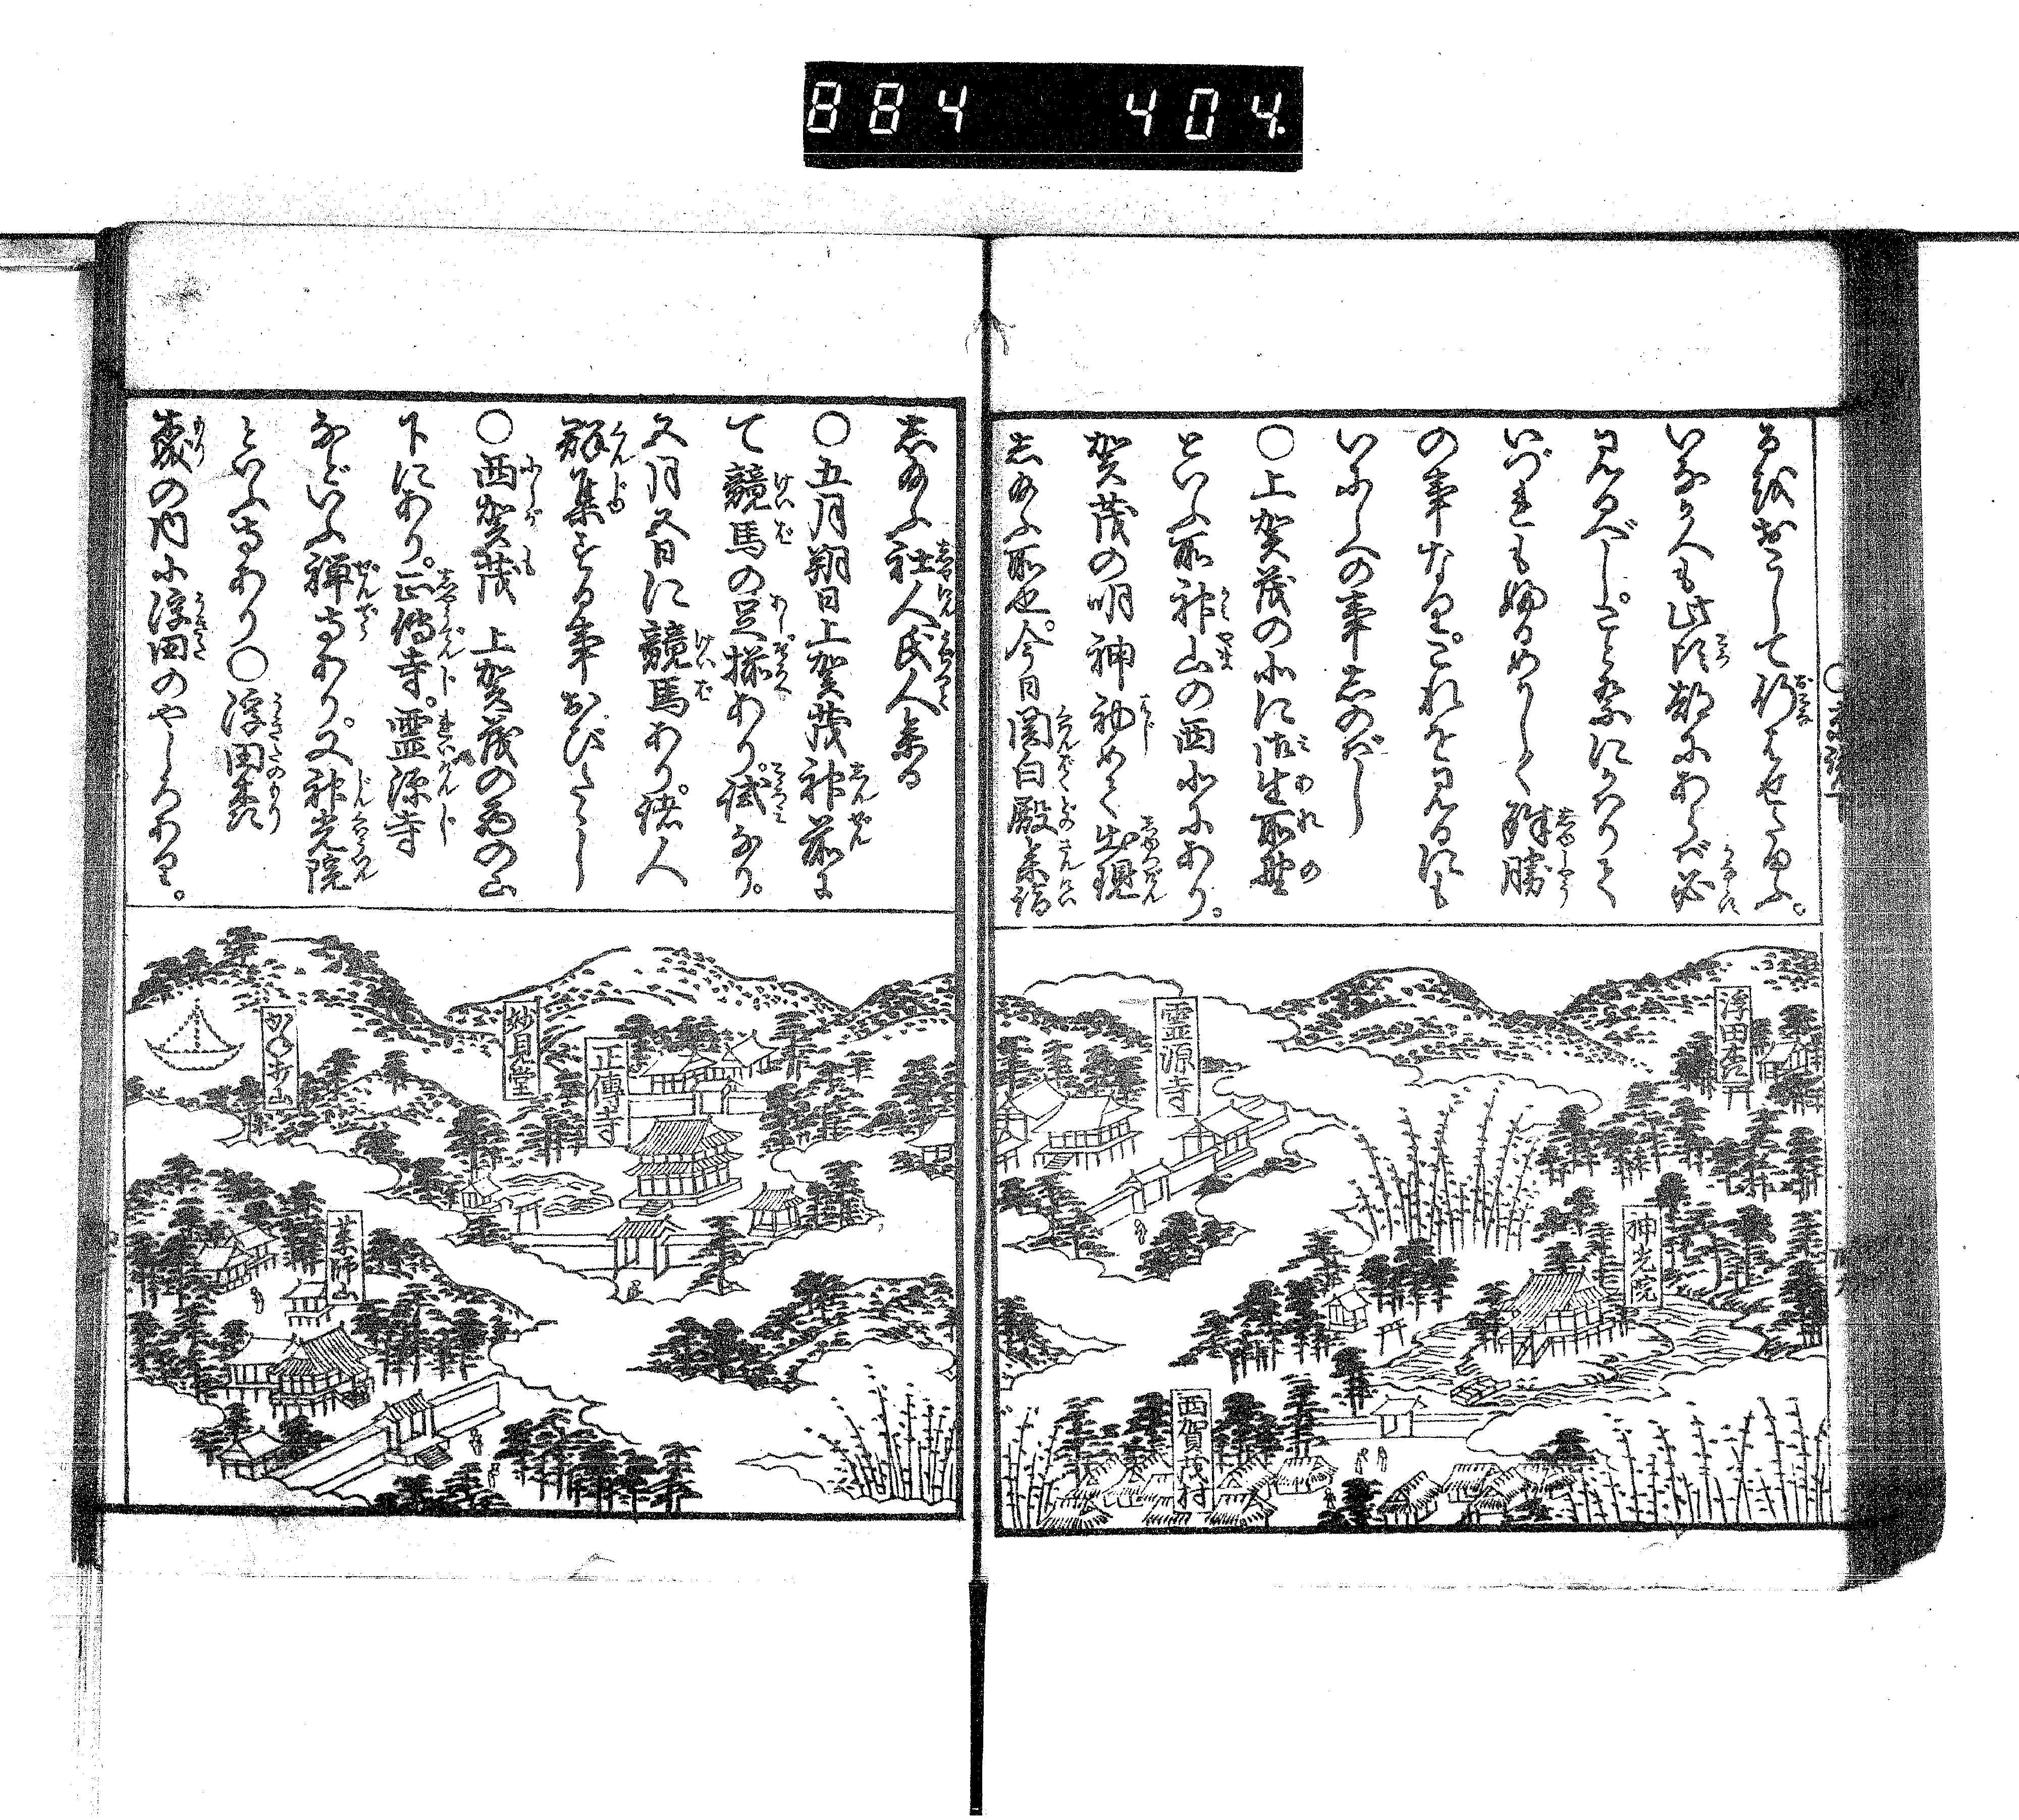 884 404
る銭おこして行はせたまふ。
いなか人も此頃都にあらバ必
見るべし。こと祭にかハりて
いづれも物さめかしく殊勝
の事なり。これを見るにも
いにしへの事しのばし
〇上賀茂の北に御生所野
といふ所神山の西北にあり。
賀茂の明神初めて出現
し給ふ所也。今日関白殿参詣
し給ふ社人氏人参る
〇五月朔日上賀茂神前に
て競馬の足揃あり。試なり。
五月五日に競馬あり。諸人
群集する事おびたゝし
〇西賀茂 上賀茂の西の山
下にあり。正傳寺。霊源寺
などいふ禅寺あり。又神光院
といふ寺あり〇浮田森
森の内に浮田のやしろあり。
浮田森
霊源寺
神光院
西賀茂村
妙見堂
正傳寺
山
薬師山